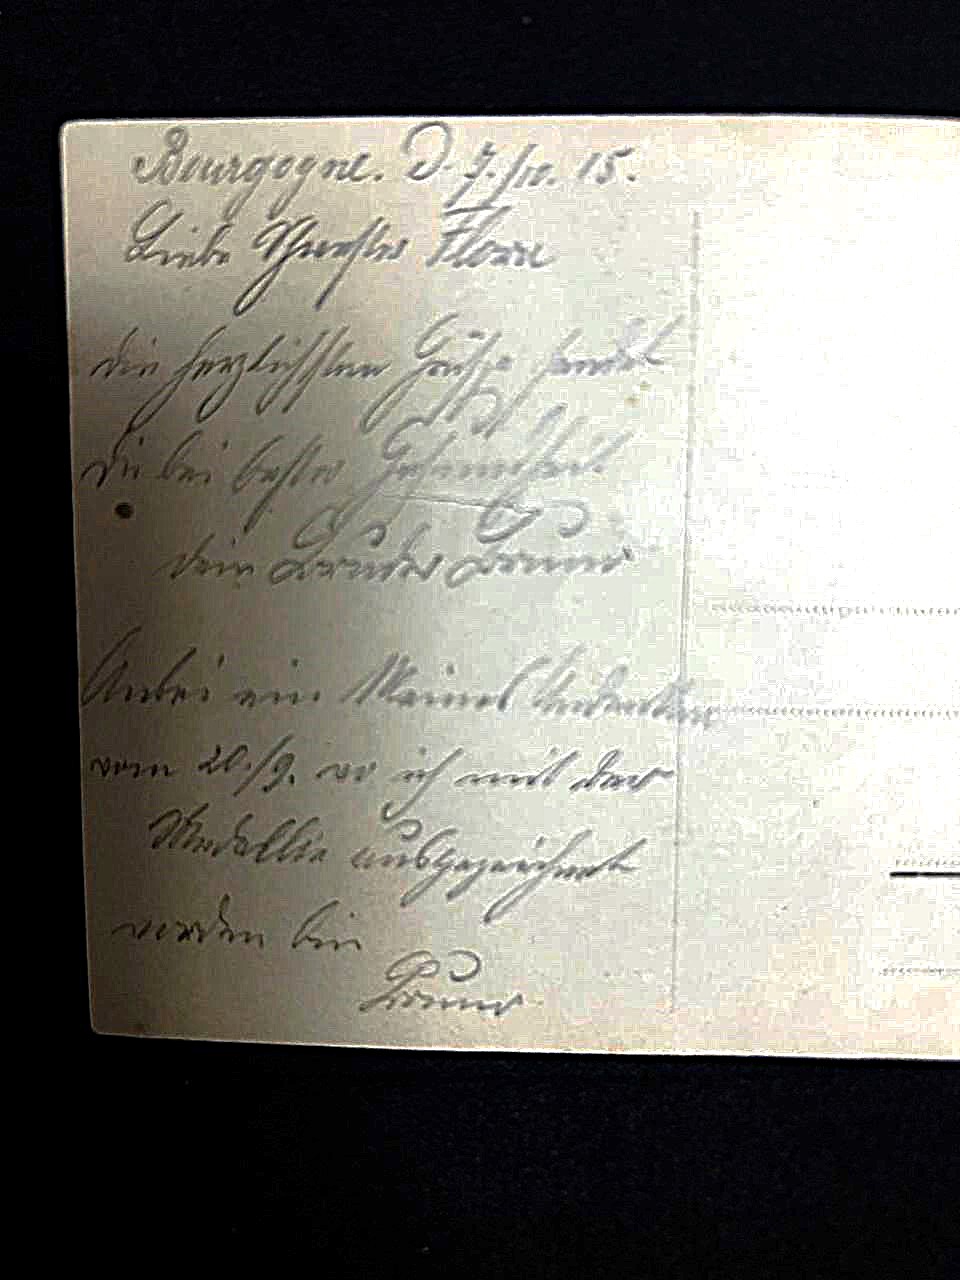 Bourgogne. D. 7./10. 15.
Liebe Schwester Flora
die herzlichsten Grüße sendet
dir bei bester Gesundheit
dein Bruder Bruno
Anbei ein kleines Andenken
vom 20./9. wo ich mit der
Medallie ausgezeichnet
worden bin
Bruno